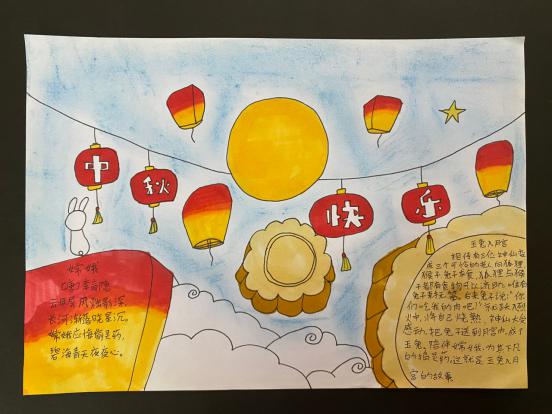 中秋快乐
嫦娥
[唐]李商隐
云母屏风烛影深,
长河渐落晓星沉。
嫦娥应悔偷灵药,
碧海青天夜夜心。
玉兔入月宫
相传有三位神仙变
成三个可怜的老人向狐狸
猴子兔子求食,狐狸与猴
子都有食物可以济助,唯有
兔子束手无策。后来兔子说:"你
们吃我的肉吧!"就跃入烈
火中,将自己烧熟,神仙大受
感动,把兔子送到月宫内,成了
玉兔,陪伴嫦娥,
的捣
药,这就是玉兔入月
宫的故事